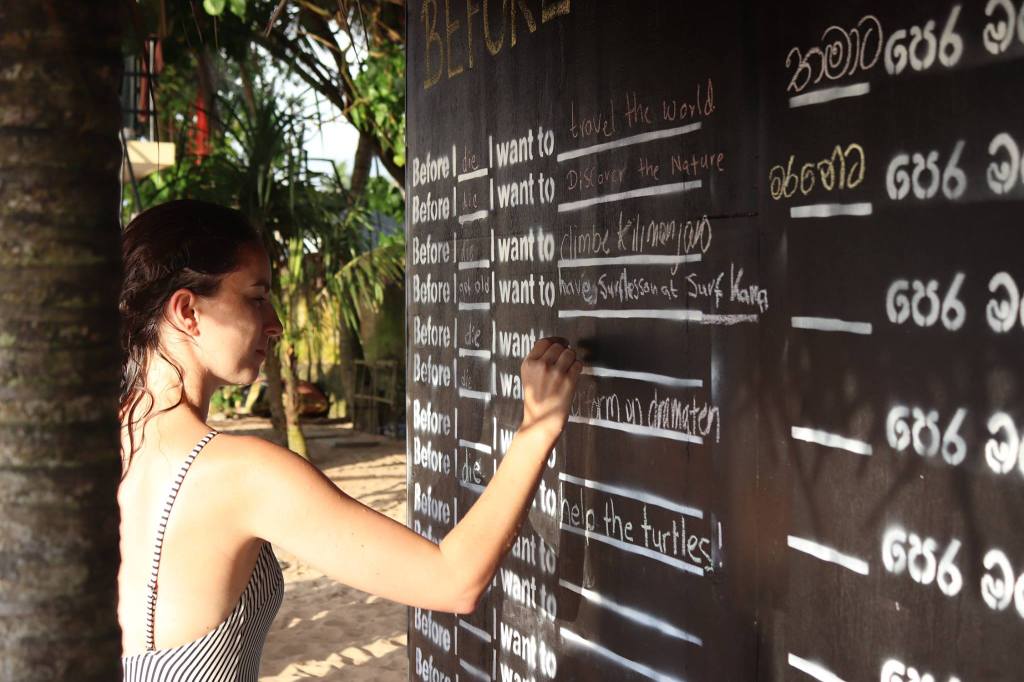 BEFORE
Before I die I want to travel the world
Before I die I want to Discover the Nature
Before I die I want to climbe kilimanjaro
Before I get old I want to have Surflesson at Surf Kara
Before I die I want
Before I die I wa form on dramaten
Before I
Before I die. to
Before help the turtles!
want to
want to
Before want to
Before want to
තමාට පෙර ම
මරනො පෙර ම
පෙර ම
පෙර ම
පෙර ම